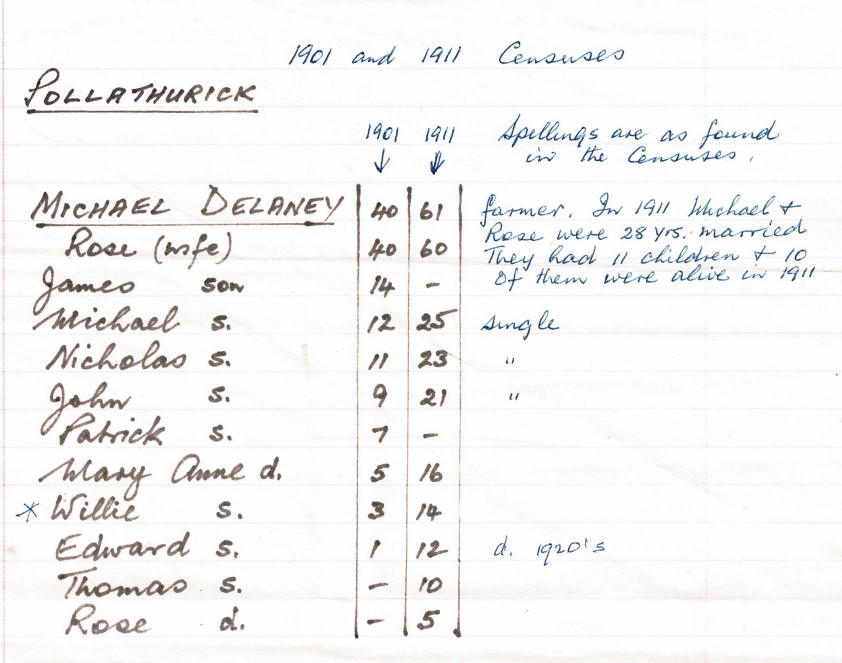 1901 and 1911 Censuses
POLLATHURICK
1901 1911 Spellings are as found
↓ ↓ in the Censuses.
MICHAEL DELANEY 40 61 farmer. In 1911 Michael +
Rose (wife) 40 60 Rose were 28 yrs. married
They had 11 children + 10
James son 14 - of them were alive in 1911
Michael s. 12 25 single
Nicholas s. 11 23 "
John s. 9 21 "
Patrick s. 7 -
Mary Anne d. 5 16
* Willie s. 3 14
Edward s. 1 12 d. 1920's
Thomas s. - 10
Rose d. - 5